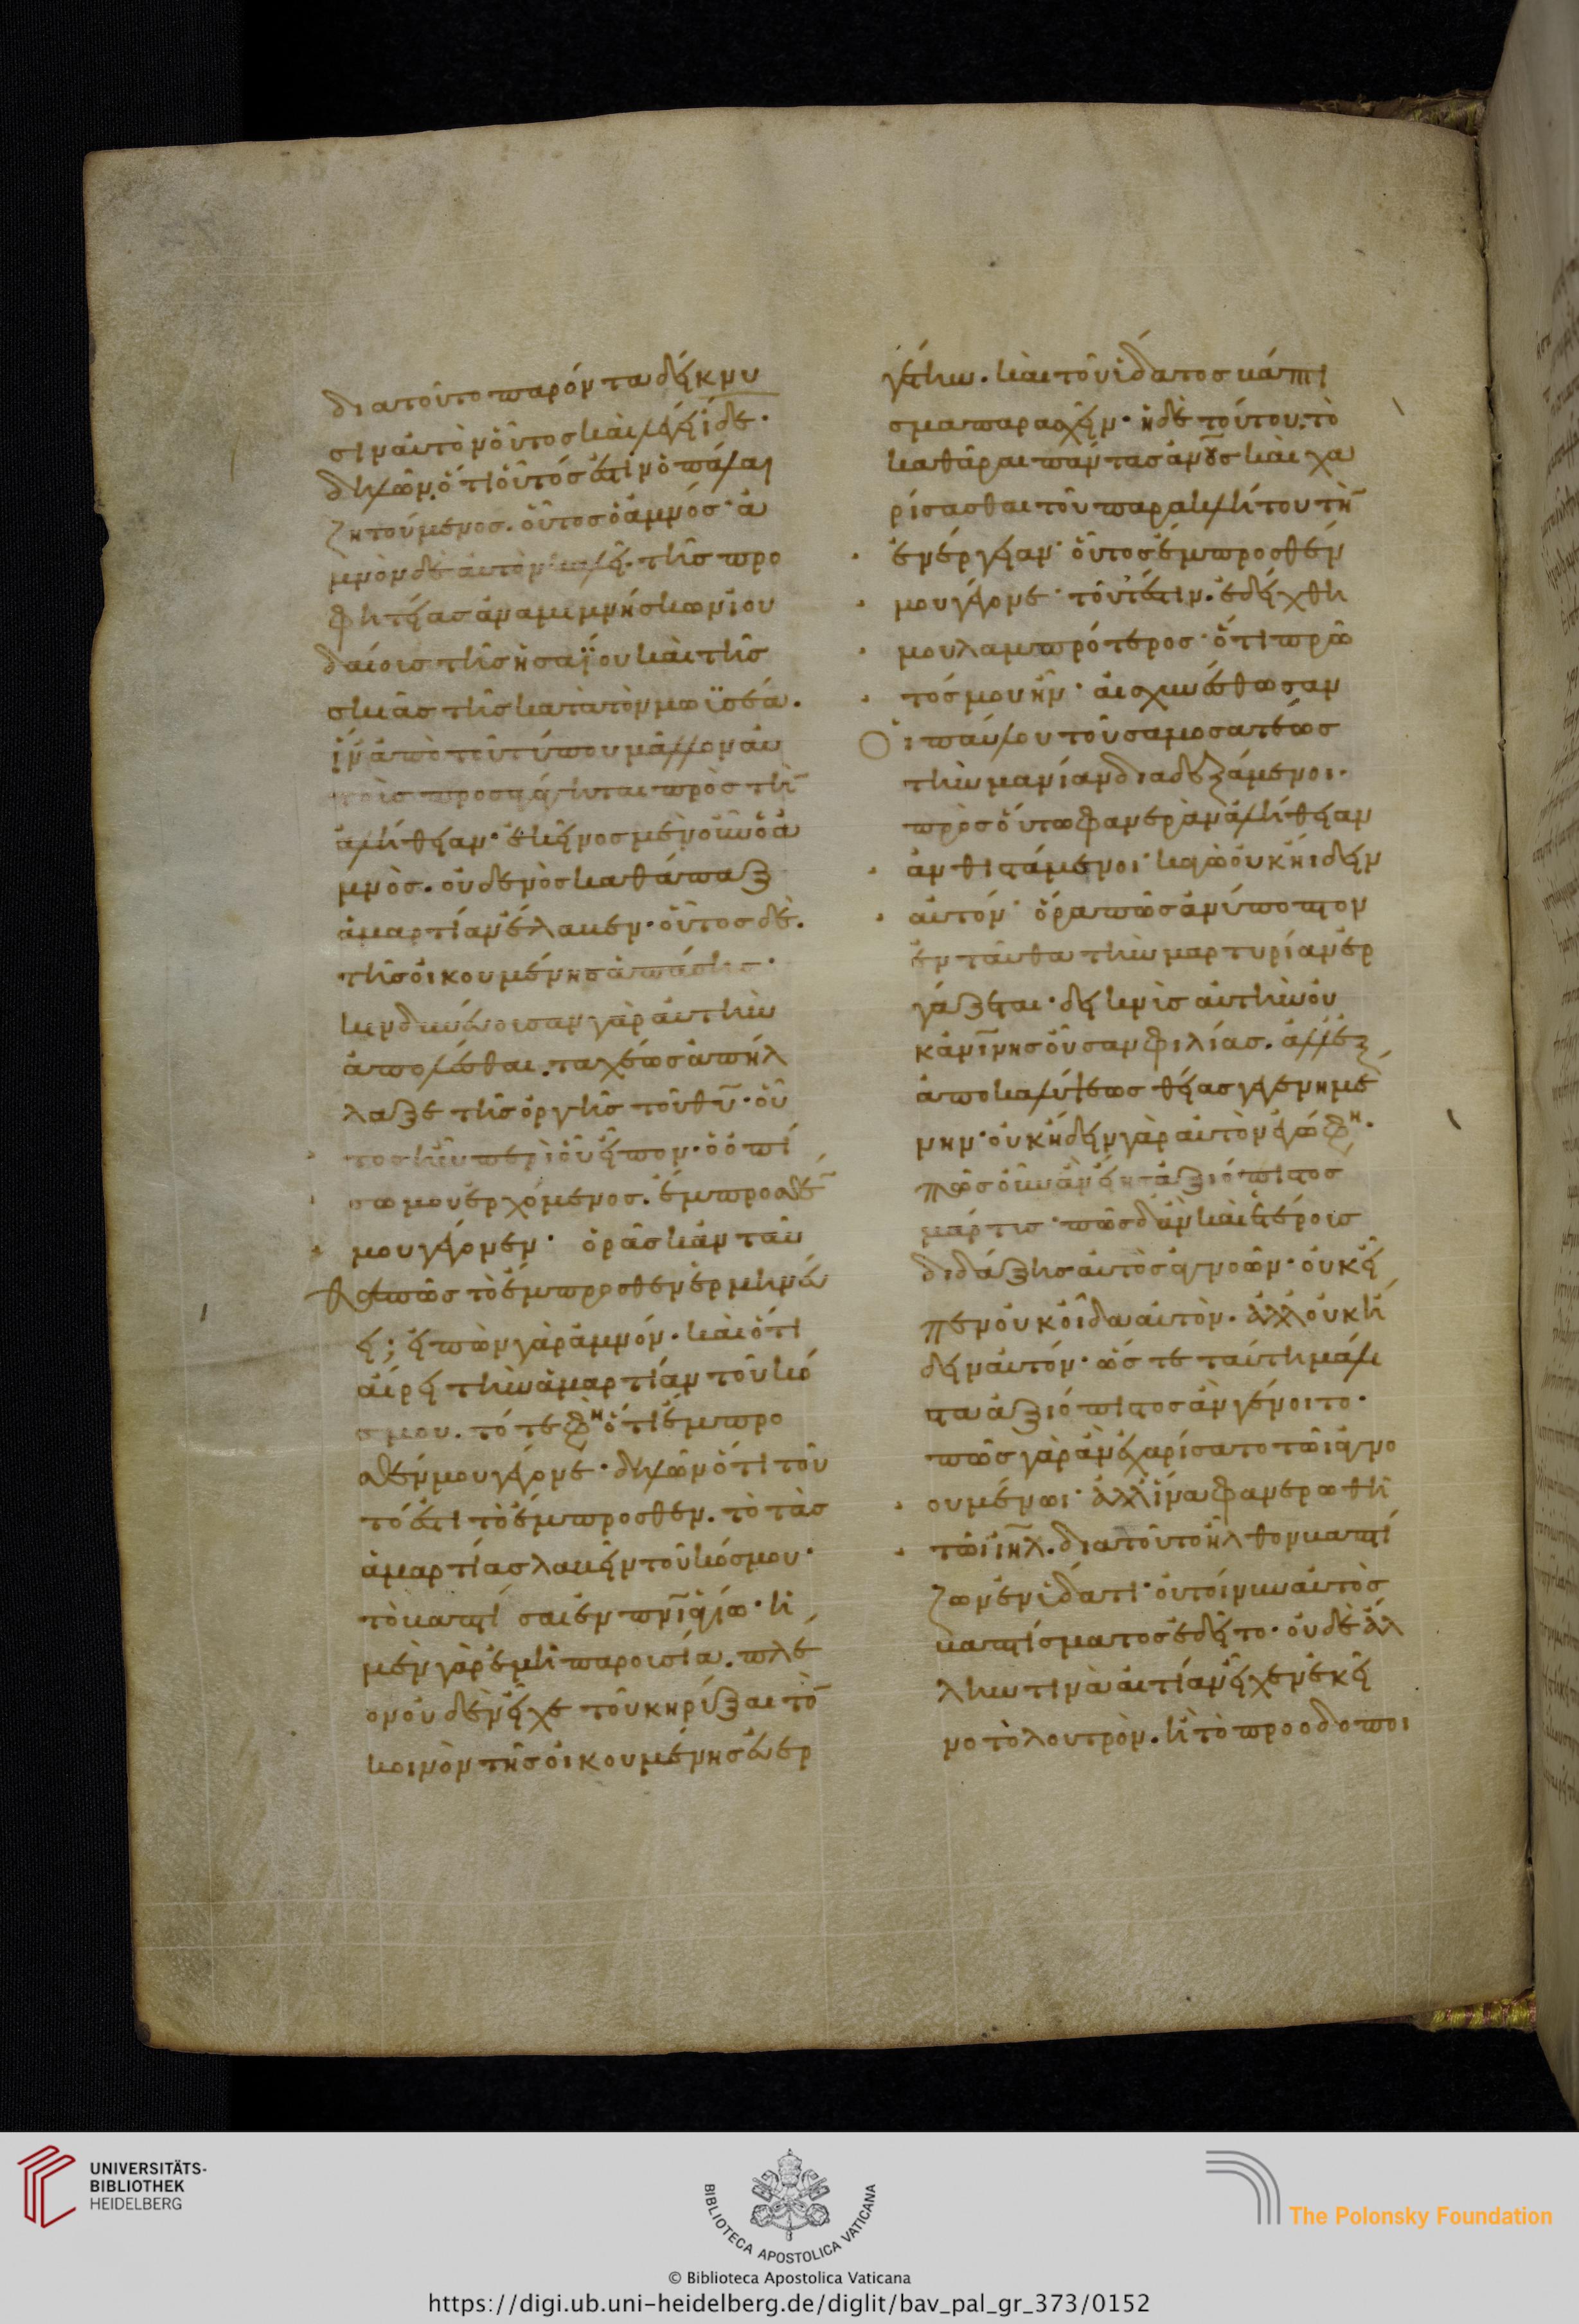 διατοῦτο παρόντα δείκνυ
σιν αὐτὸν οὗτος καὶ λέγει ἴδε·
δηλῶν, ὅτι οὗτός ἐστιν ὁ πάλαι
ζητούμενος. οὗτος ὁ ἀμνός· ἀ
μνὸν δὲ αὐτὸν καλεῖ. τῆς προ
φητείας ἀναμιμνήσκων ἰου
δαίοις τῆς ἡσαΐου καὶ τῆς
σκιᾶς τῆς κατὰ τὸν μωϊσέα.
ἵν' ἀπὸ τοῦ τύπου μᾶλλον αὐ
τοῖς προσάγηται πρὸς τὴ
ἀλήθειαν· ἐκεῖνος μὲν οὖν ὁ ἀ
μνὸς. οὐδενὸς καθάπαξ
ἁμαρτίαν ἔλαβεν· οὗτος δὲ.
τῆς οἰκουμένης ἁπάσης·
κινδυνεύουσαν γὰρ αὐτὴν
ἀπολέσθαι. ταχέως ἀπήλ
λαξε τῆς ὀργῆς τοῦ θυ· οὗ
τος ἦν περὶ οὗ εἶπον· ὁ ὀπί
σω μου ἐρχόμενος. ἔμπροσθε
μου γέγονεν· ὁρᾶς κἀνταῦ
θα πῶς τὸ ἔμπροσθεν ἑρμηνεύ
ει; εἰπὼν γὰρ ἀμνόν. καὶ ὅτι
αἴρει τὴν ἁμαρτίαν τοῦ κό
σμου. τότε φη ὅτι ἔμπρο
σθεν μου γέγονε· δηλῶν ὅτι τοῦ
τό ἐστι τὸ ἔμπροσθεν. τὸ τὰς
ἁμαρτίας λαβεῖν τοῦ κόσμου·
τὸ βαπτίσαι ἐν πνι ἁγίω· ἡ
μὲν γὰρ ἐμὴ παρουσία. πλέ
ον οὐδὲν εἶχε τοῦ κηρύξαι τὸ
κοινὸν τῆς οἰκουμένης εὐερ
γέτην. καὶ τοῦ ὕδατος βάπτι
σμα παρασχεῖν· ἡ δὲ τούτου. τὸ
καθᾶραι πάντας ἀνους καὶ χα
ρίσασθαι τοῦ παρακλήτου τὴ
ἐνέργειαν· οὗτος ἔμπροσθέν
μου γέγονε· τουτέστιν. ἐδείχθη
μου λαμπρότερος· ὅτι πρῶ
τός μου ἦν· αἰσχυνέσθωσαν
οἱ παύλου τοῦ σαμοσατέως
τὴν μανίαν διαδεξάμενοι.
πρὸς οὕτω φανερὰν ἀλήθειαν
ἀνθιστάμενοι· κἀγὼ οὐκ ἤιδειν
αὐτόν· ὅρα πῶς ἀνύποπτον
ἐνταῦθα τὴν μαρτυρίαν ἐρ
γάζεται· δεικνὺς αὐτὴν οὐ
κ ἀνίνης οὖσαν φιλίας. ἀλλ' ἐξ
ἀποκαλύψεως θείας γεγενημέ
νην· οὐκ ἤδειν γὰρ αὐτὸν ἐγώ φη·
πῶς οὖν ἂν εἴης ἀξιόπιστος
μάρτυς· πῶς δ' ἂν καὶ ἑτέροις
διδάξης αὐτὸς ἀγνοῶν· οὐκ εἶ
πεν οὐκ οἶδα αὐτὸν. ἀλλ' οὐκ ἤ
δειν αὐτόν· ὥστε ταύτη μάλι
στα ἀξιόπιστος ἂν γένοιτο·
πῶς γὰρ ἂν ἐχαρίσατο τῶι ἀγνο
ουμένωι· ἀλλ' ἵνα φανερωθῆ
τῶι ιηλ. διατοῦτο ἦλθον βαπτί
ζων ἐν ὕδατι· οὐ τοίνυν αὐτὸς
βαπτίσματος ἐδεῖτο· οὐδὲ ἄλ
λην τινὰ αἰτίαν εἶχεν ἐκεῖ
νο τὸ λουτρὸν. ἢ τὸ προοδοποι
UNIVERSITÄTS-
BIBLIOTHEK
HEIDELBERG
BIBLIOTECA APOSTOLICA VATICANA
The Polonsky Foundation
© Biblioteca Apostolica Vaticana
https://digi.ub.uni-heidelberg.de/diglit/bav_pal_gr_373/0152